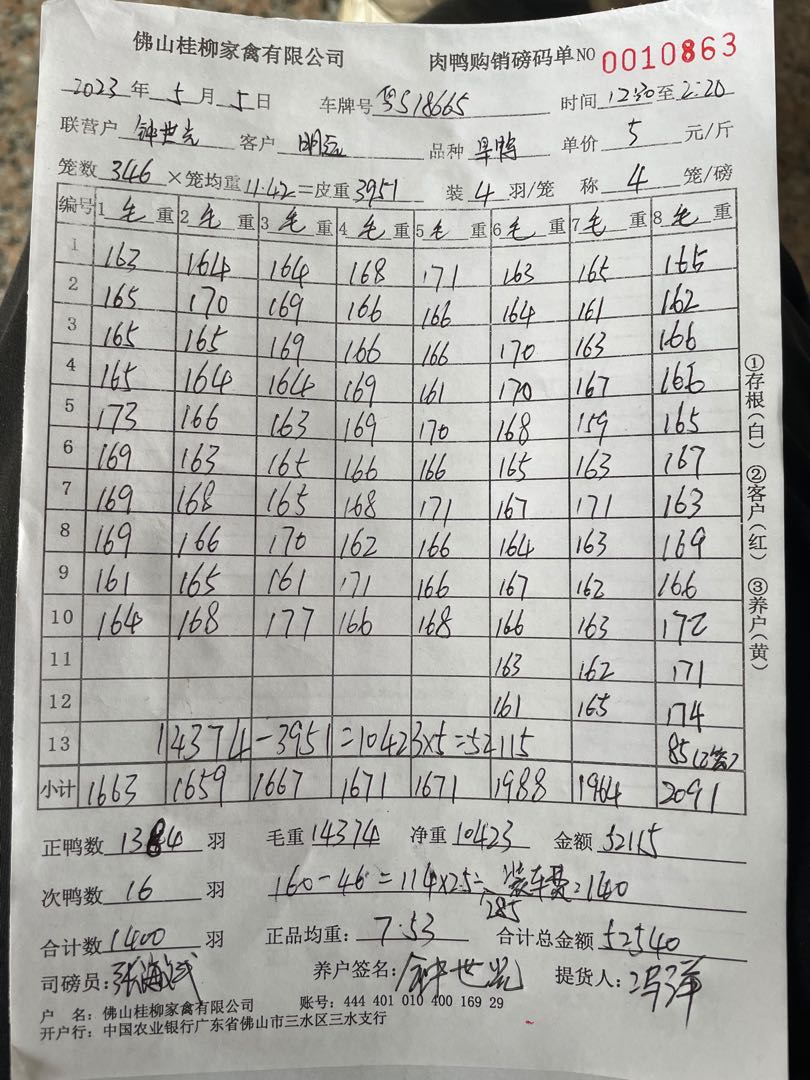 佛山桂柳家禽有限公司 肉鸭购销磅码单 NO 0010863
2023 年 5 月 5 日 车牌号 粤S18665 时间 12:30 至 2:20
联营户 钟世光 客户 品种 旱鸭 单价 5 元/斤
笼数 346 ×笼均重 11.42 =皮重 3951 装 4 羽/笼 称 4 笼/磅
编号 1 毛 重 2 毛 重 3 毛 重 4 毛 重 5 毛 重 6 毛 重 7 毛 重 8 毛 重
1 163 164 164 168 171 163 165 165
2 165 170 169 166 166 164 161 162
3 165 165 169 166 166 170 163 166
4 165 164 164 169 161 170 167 166
5 173 166 163 169 170 168 159 165
6 169 163 165 166 166 165 163 167
7 169 168 165 168 171 167 171 163
8 169 166 170 162 166 164 163 169
9 161 165 161 171 166 167 162 166
10 164 168 177 166 168 166 163 172
11 163 162 171
12 161 165 174
13 14374-3951=10423×5=52115 85(2笼)
小计 1663 1659 1667 1671 1671 1988 1964 2091
正鸭数 1384 羽 毛重 14374 净重 10423 金额 52115
次鸭数 16 羽 160-46=114×2.5= 285 装车费:140
合计数 1400 羽 正品均重: 7.53 合计总金额 52540
司磅员: 养户签名: 钟世光 提货人: 冯洋
户 名: 佛山桂柳家禽有限公司 账号: 444 401 010 400 169 29
开户行: 中国农业银行广东省佛山市三水区三水支行
①存根(白) ②客户(红) ③养户(黄)